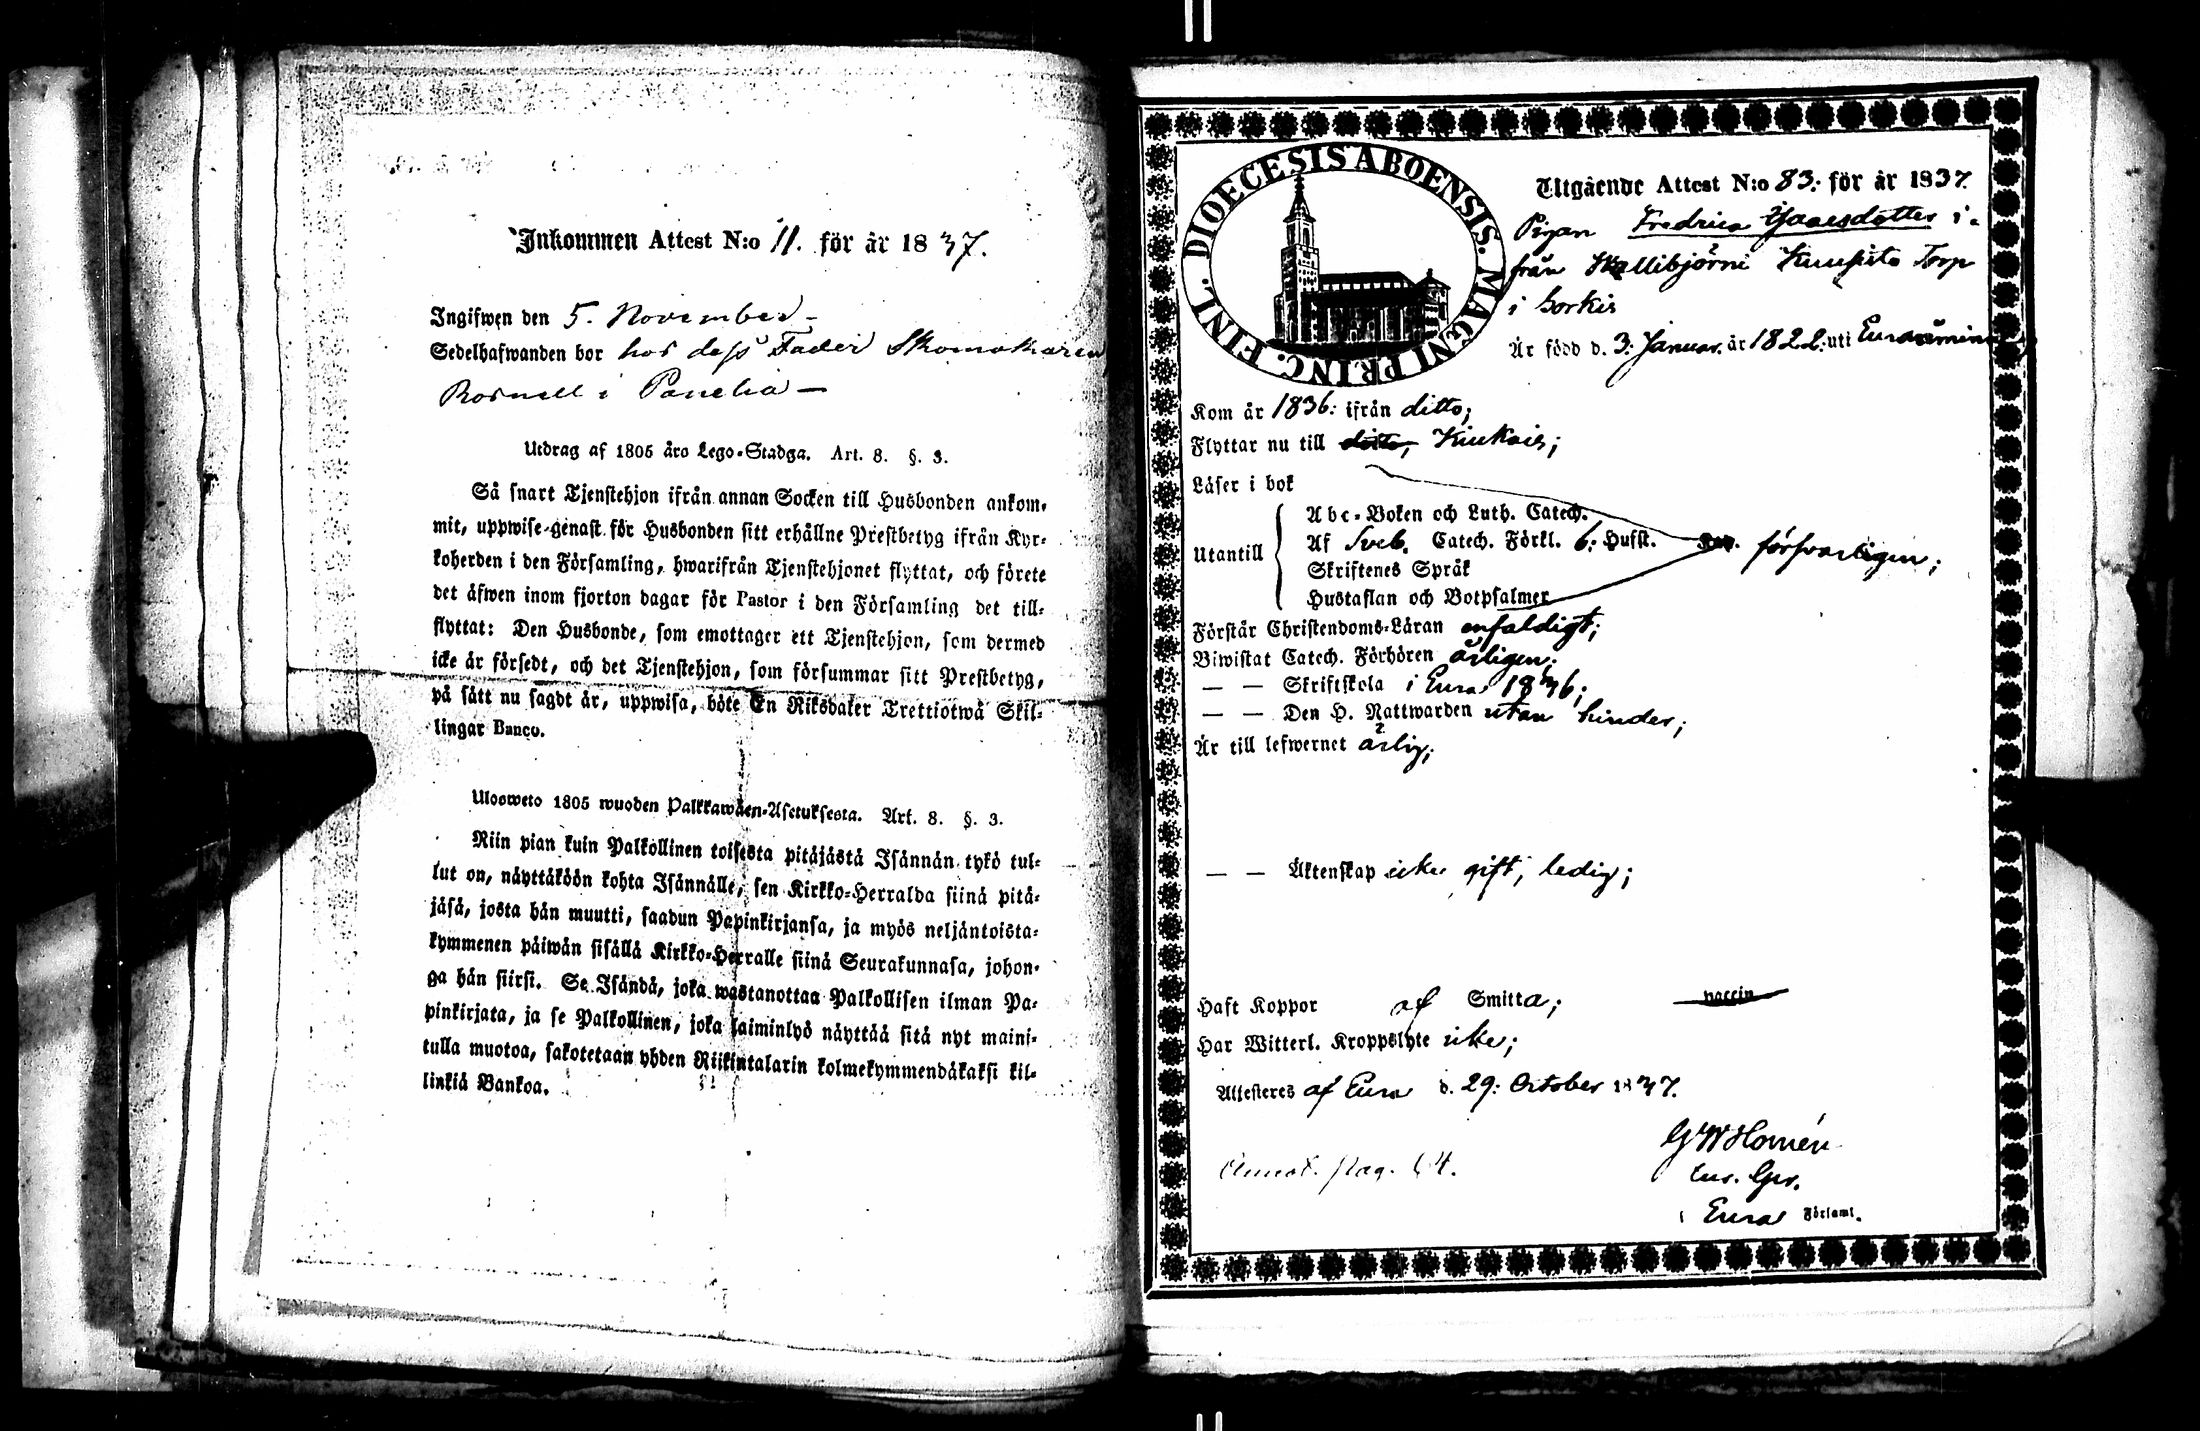 Inkommen Attest N:o 11. för år 1837.
Ingifwen den 5. November –
Sedelhafwanden bor hos dess Fader Skomakaren
Rosnell i Panelia –
Utdrag af 1805 års Lego-Stadga. Art. 8. §. 3.
Så snart Tjenstehjon ifrån annan Socken till Husbonden ankom-
mit, uppwise genast för Husbonden sitt erhållne Prestbetyg ifrån Kyr-
koherden i den Församling, hwarifrån Tjenstehjonet flyttat, och förete
det äfwen inom fjorton dagar för Pastor i den Församling det till-
flyttat: Den Husbonde, som emottager ett Tjenstehjon, som dermed
icke är försedt, och det Tjenstehjon, som försummar sitt Prestbetyg,
på sätt nu sagdt är, uppwisa, böte En Riksdaler Trettiotwå Skil-
lingar Banco.
Ulosweto 1805 wuoden Palkkawäen-Asetuksesta. Art. 8. §. 3.
Niin pian kuin Palkollinen toisesta pitäjästä Isännän tykö tul-
lut on, näyttäköön kohta Isännälle, sen Kirkko-Herralda siinä pitä-
jäsä, josta hän muutti, saadun Papinkirjansa, ja myös neljäntoista-
kymmenen päiwän sisällä Kirkko-Herralle siinä Seurakunnasa, johon-
ga hän siirsi. Se Isändä, joka wastanottaa Palkollisen ilman Pa-
pinkirjata, ja se Palkollinen, joka laiminlyö näyttää sitä nyt maini-
tulla muotoa, sakotetaan yhden Riikintalarin kolmekymmendäkaksi kil-
linkiä Bankoa.
DIOECESIS ABOENSIS. MAGNI PRINC. FINL.
Utgående Attest N:o 83: för år 1837.
Pigan Fredrica Isaacsdotter i-
från Skallibjörni Torp
i Sorkis
Är född d. 3: Januar. år 1822: uti Euraåminne
Kom år 1836: ifrån ditto;
Flyttar nu till ditto, Kiukais;
Läser i bok
Utantill
Abc-Boken och Luth. Catech.
Af Sveb. Catech. Förkl. 6: Hufst.
Skriftenes Språk
Hustaflan och Botpsalmer
försvarligen;
Förstår Christendoms-Läran enfaldigt;
Biwistat Catech. Förhören årligen;
— — Skriftskola i Eura 1836;
— — Den H. Nattwarden utan hinder;
Är till lefwernet ärlig;
— — Äktenskap icke gift, ledig;
Haft Koppor af Smitta; vaccin
Har Witterl. Kroppslyte icke;
Attesteres af Eura d. 29: October 1837.
G W Homén
i Eura Församl.
Annot. pag. 64.